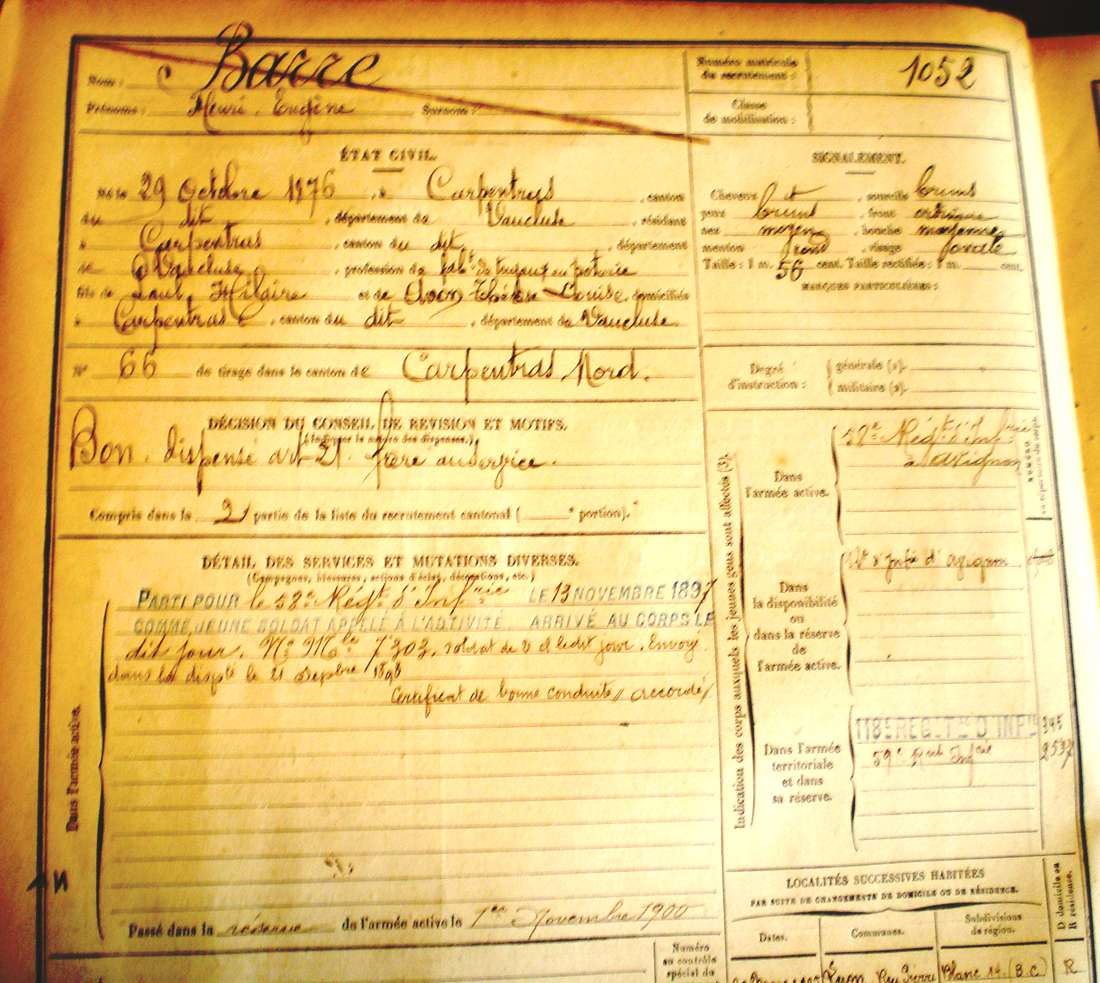 Nom : Barre
Prénoms : Henri Eugène Surnoms :
Numéro matricule
du recrutement : 1052
Classe
de mobilisation :
ÉTAT CIVIL.
Né le 29 Octobre 1876, à Carpentras, canton
du dit, département de Vaucluse, résidant
à Carpentras, canton du dit, département
de Vaucluse, profession de fabt de tuyaux en poterie
fils de Paul Hilaire et de Thérèse Louise, domiciliés
à Carpentras, canton du dit, département de Vaucluse
N° 66 de tirage dans le canton de Carpentras Nord.
SIGNALEMENT.
Cheveux et, sourcils bruns
yeux bruns, front ordinaire
nez moyen, bouche moyenne
menton rond, visage ovale
Taille : 1 m. 56 cent. Taille rectifiée : 1 m. cent.
MARQUES PARTICULIÈRES :
Degré
d'instruction :
générale (2).
militaire (3).
DÉCISION DU CONSEIL DE REVISION ET MOTIFS.
(Indiquer la nature des dispenses.)
Bon. dispensé art 21. frère au service.
Compris dans la 2 partie de la liste du recrutement cantonal ( portion).
DÉTAIL DES SERVICES ET MUTATIONS DIVERSES.
(Campagnes, blessures, actions d'éclat, décorations, etc.)
Dans l'armée active.
PARTI POUR le 58e Régt d'Infrie LE 13 NOVEMBRE 1897
COMME JEUNE SOLDAT APPELÉ À L'ACTIVITÉ. ARRIVÉ AU CORPS LE
dit jour. No Mle 7303. soldat de 2 cl ledit jour. Envoyé
dans la dispté le 21 septbre 1898
Certificat de bonne conduite "accordé"
Passé dans la réserve de l'armée active le 1er Novembre 1900
Indication des corps auxquels les jeunes gens sont affectés (3).
Dans
l'armée active.
58e Régt d'Infrie
à Avignon
Dans
la disponibilité
ou
dans la réserve
de
l'armée active.
d'Avignon
Dans l'armée
territoriale
et dans
sa réserve.
118e REG.T D'INFie 345
2537
LOCALITÉS SUCCESSIVES HABITÉES
PAR SUITE DE CHANGEMENTS DE DOMICILE OU DE RÉSIDENCE.
Dates. Communes. Subdivisions
de région.
D domicile ou
R résidence.
Lyon R
Numéro
au contrôle
spécial du